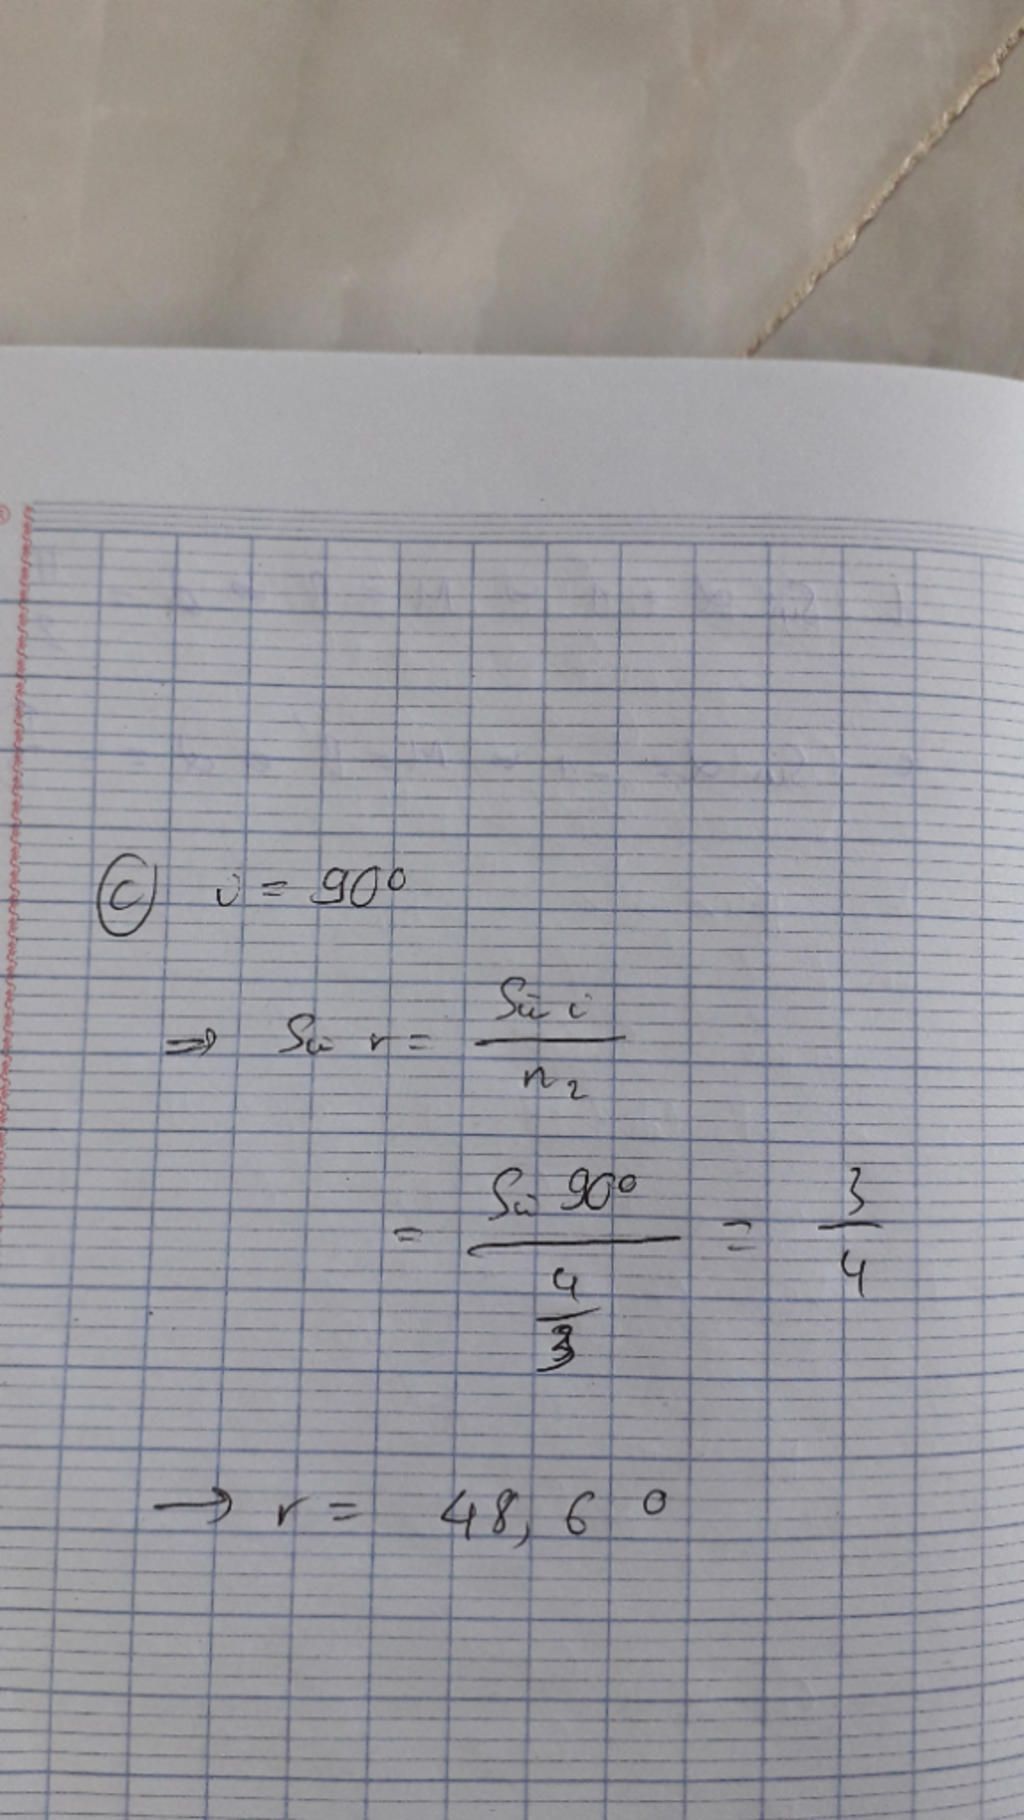 (c) i = 90°
⇒ Sin r = Sin i / n₂
= Sin 90° / (4/3) = 3/4
→ r = 48,6°